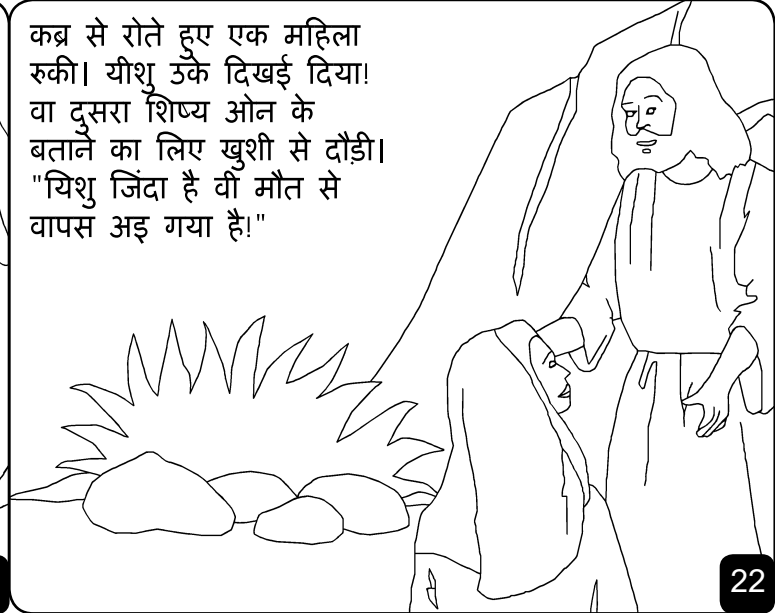 कब्र से रोते हुए एक महिला
रुकी। यीशु उके दिखई दिया!
वा दुसरा शिष्य ओन के
बताने का लिए खुशी से दौड़ी।
"यिशु जिंदा है वी मौत से
वापस अइ गया है!"
22